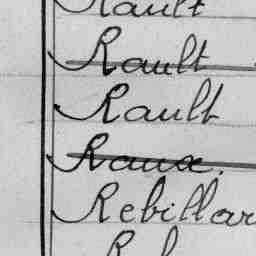 Rault
Rault
Rault
Raux.
Rebillar